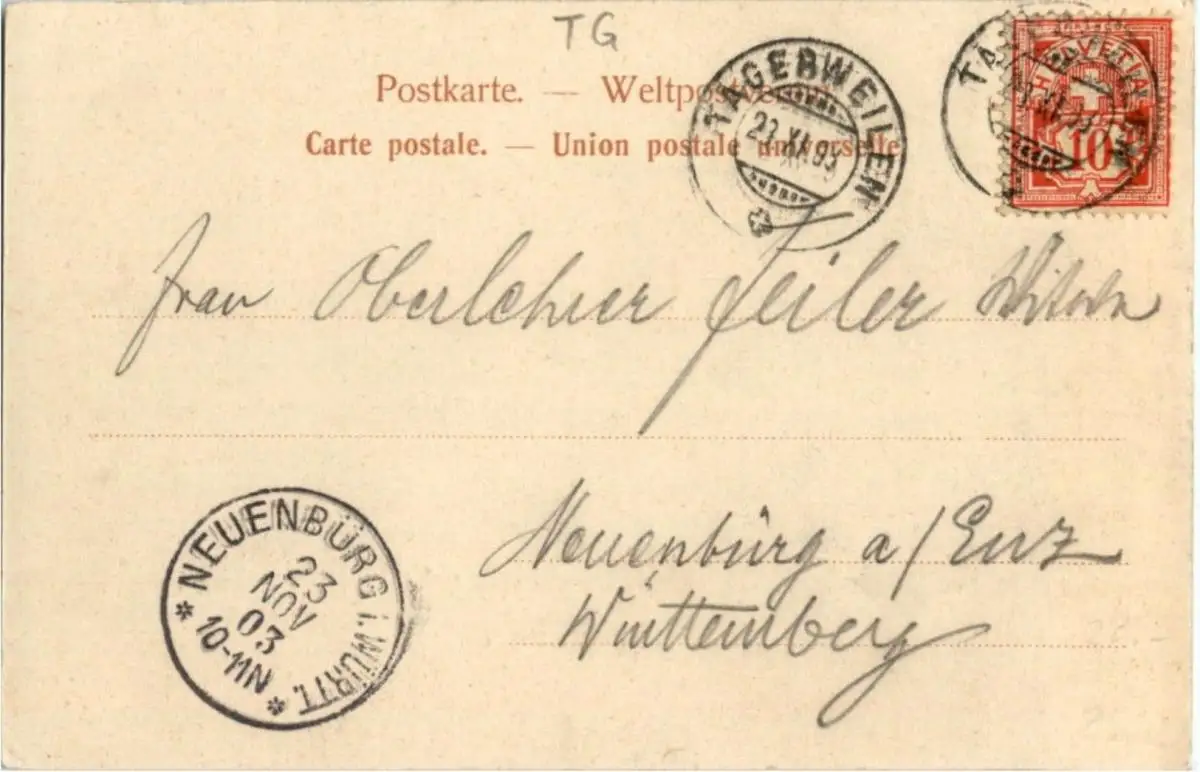 TG
Postkarte. — Weltpostverein.
Carte postale. — Union postale universelle
TÄGERWEILEN
23.XI.03
HELVETIA
10
Frau Oberlehrer Feiler Witwe
Neuenbürg a/Enz
Württemberg
NEUENBÜRG I. WÜRTT.
23
NOV
03
10-11N